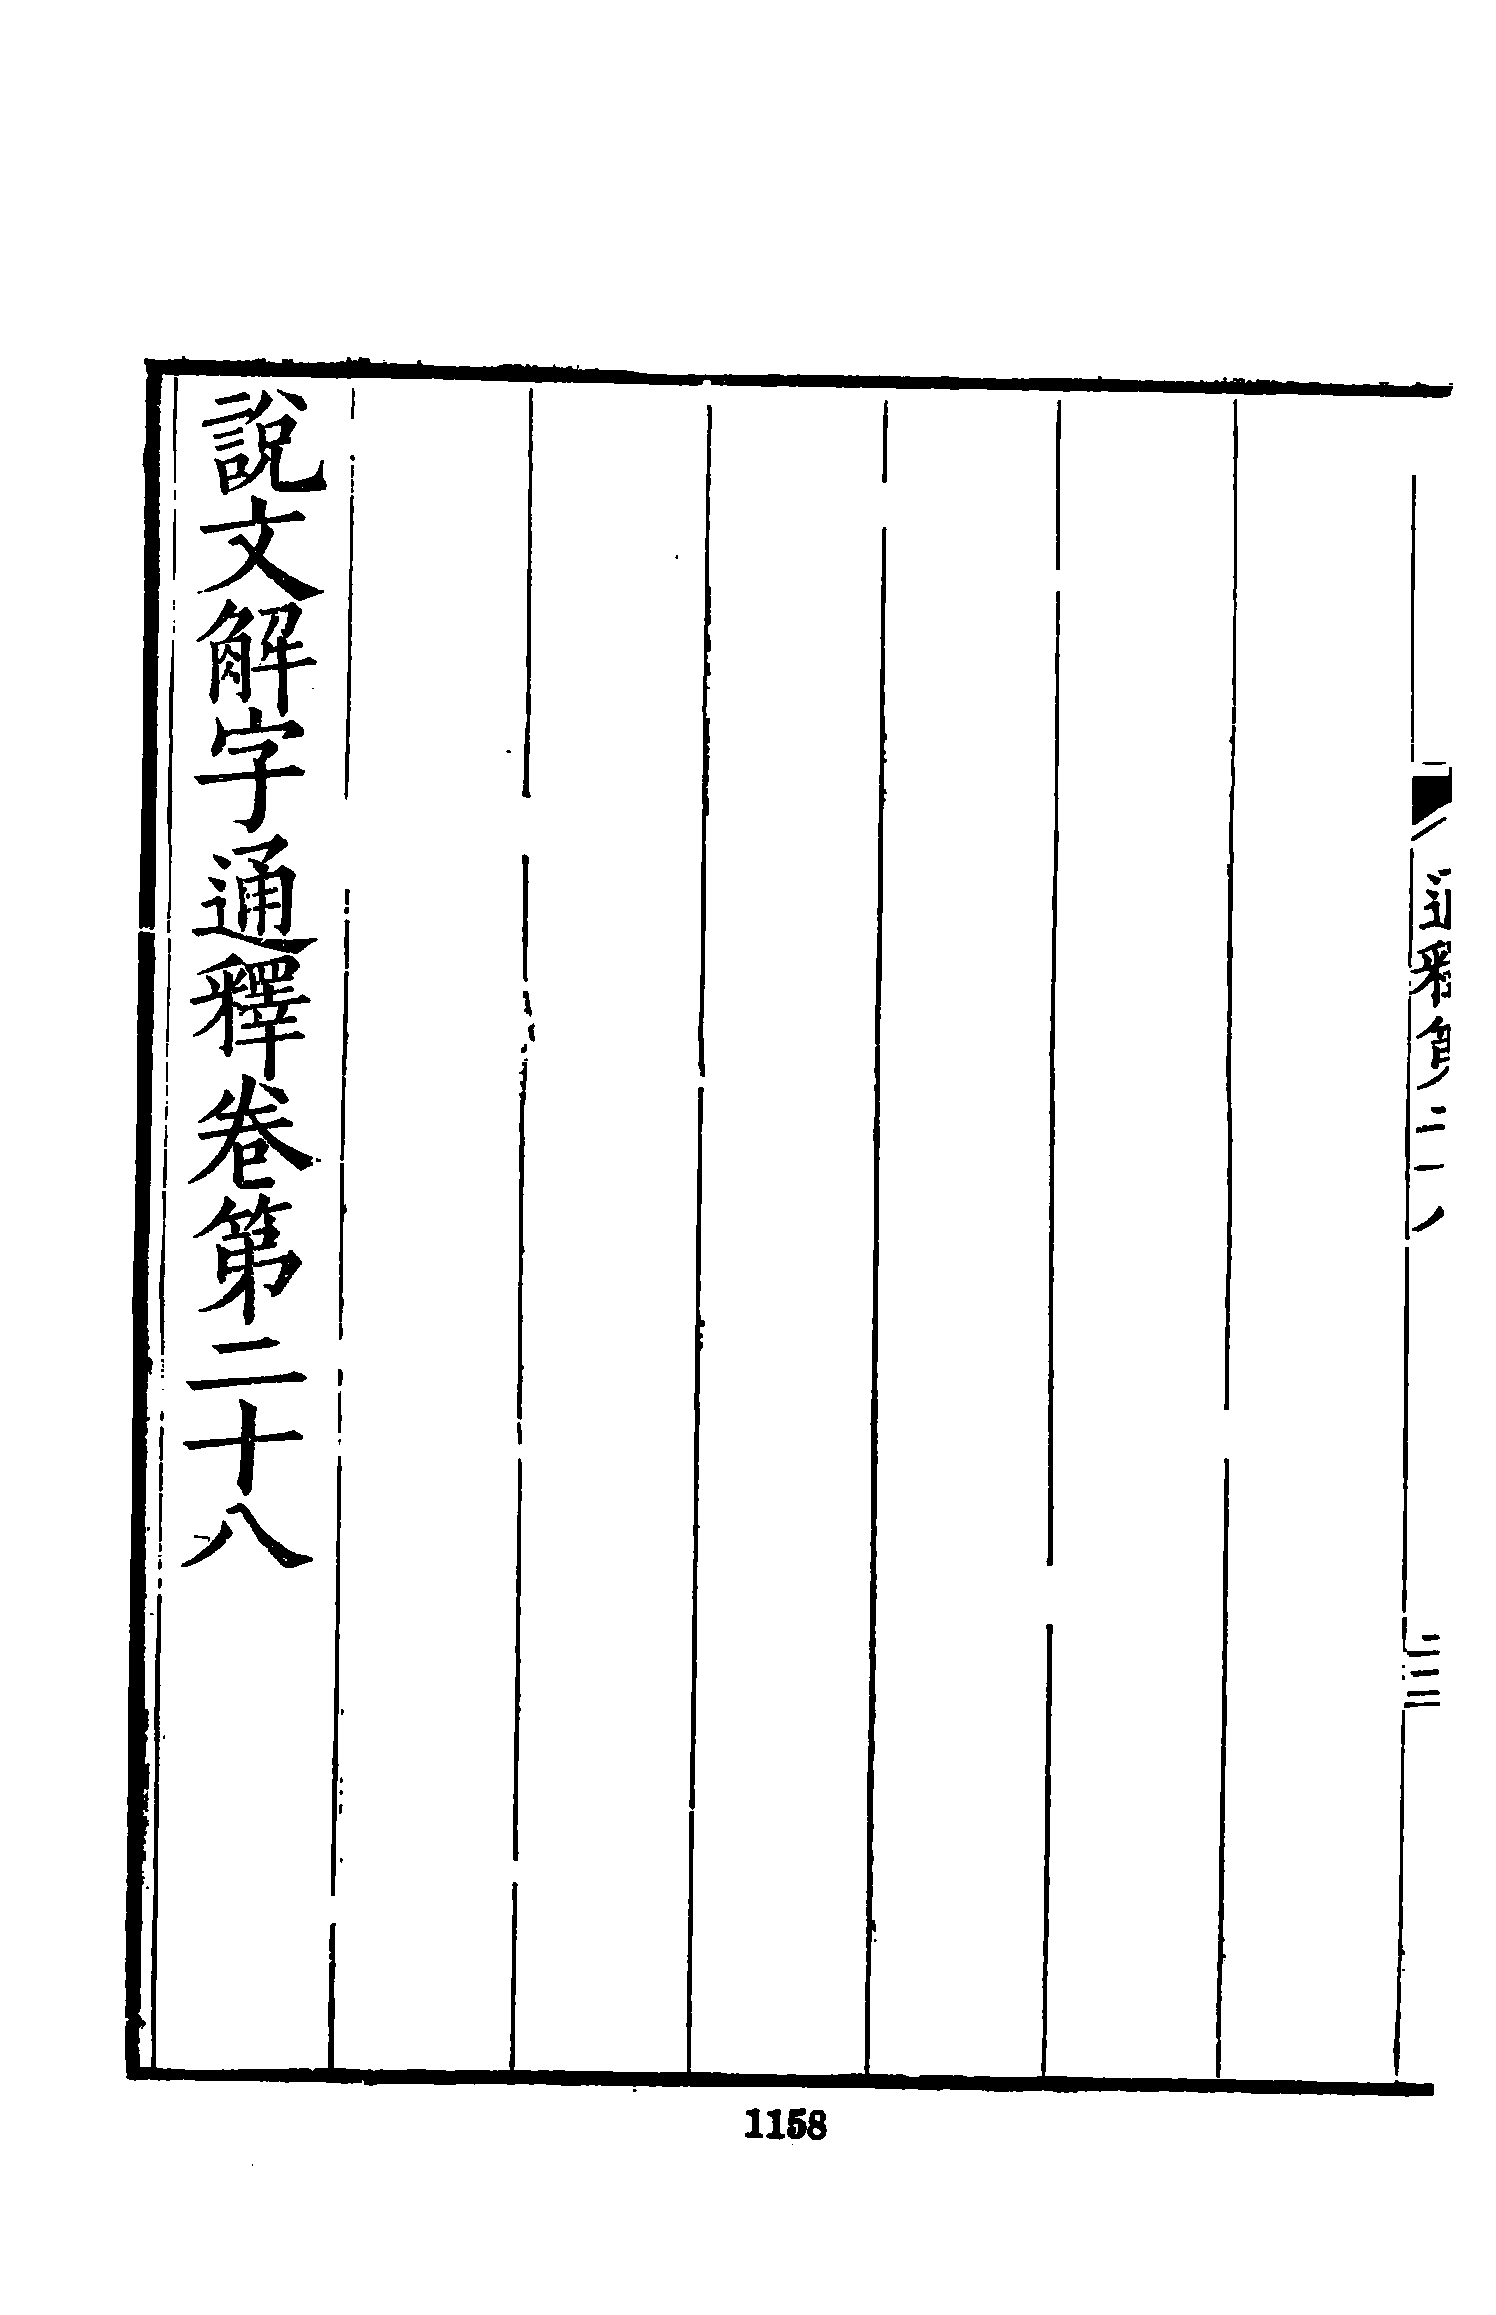 通釋第二十八
說文解字通釋卷第二十八
1158